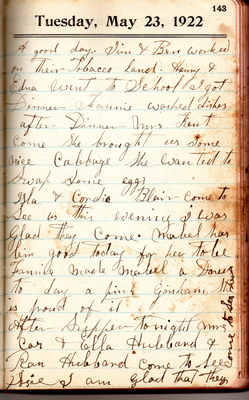 143
Tuesday, May 23, 1922
A good day. Jim & Ben worked
on their Tobacco land. Henry &
Edna went to School I got
Dinner Fannie washed dishes
after Dinner Mrs
Come She brought us Some
nice Cabbage She Wanted to
Swap Some eggs
Isla & Cordie Blair Come to
See us this evening I was
Glad they Come. Mabel has
bein good today for her to be
Fannie Made Mabel a Dress
to day a pink Gingham She
is proud of it
After Supper to night Mrs
Car & Ella Hubbard &
Ran Hubbard Come to See
Josie I am Glad that they
Come to See her